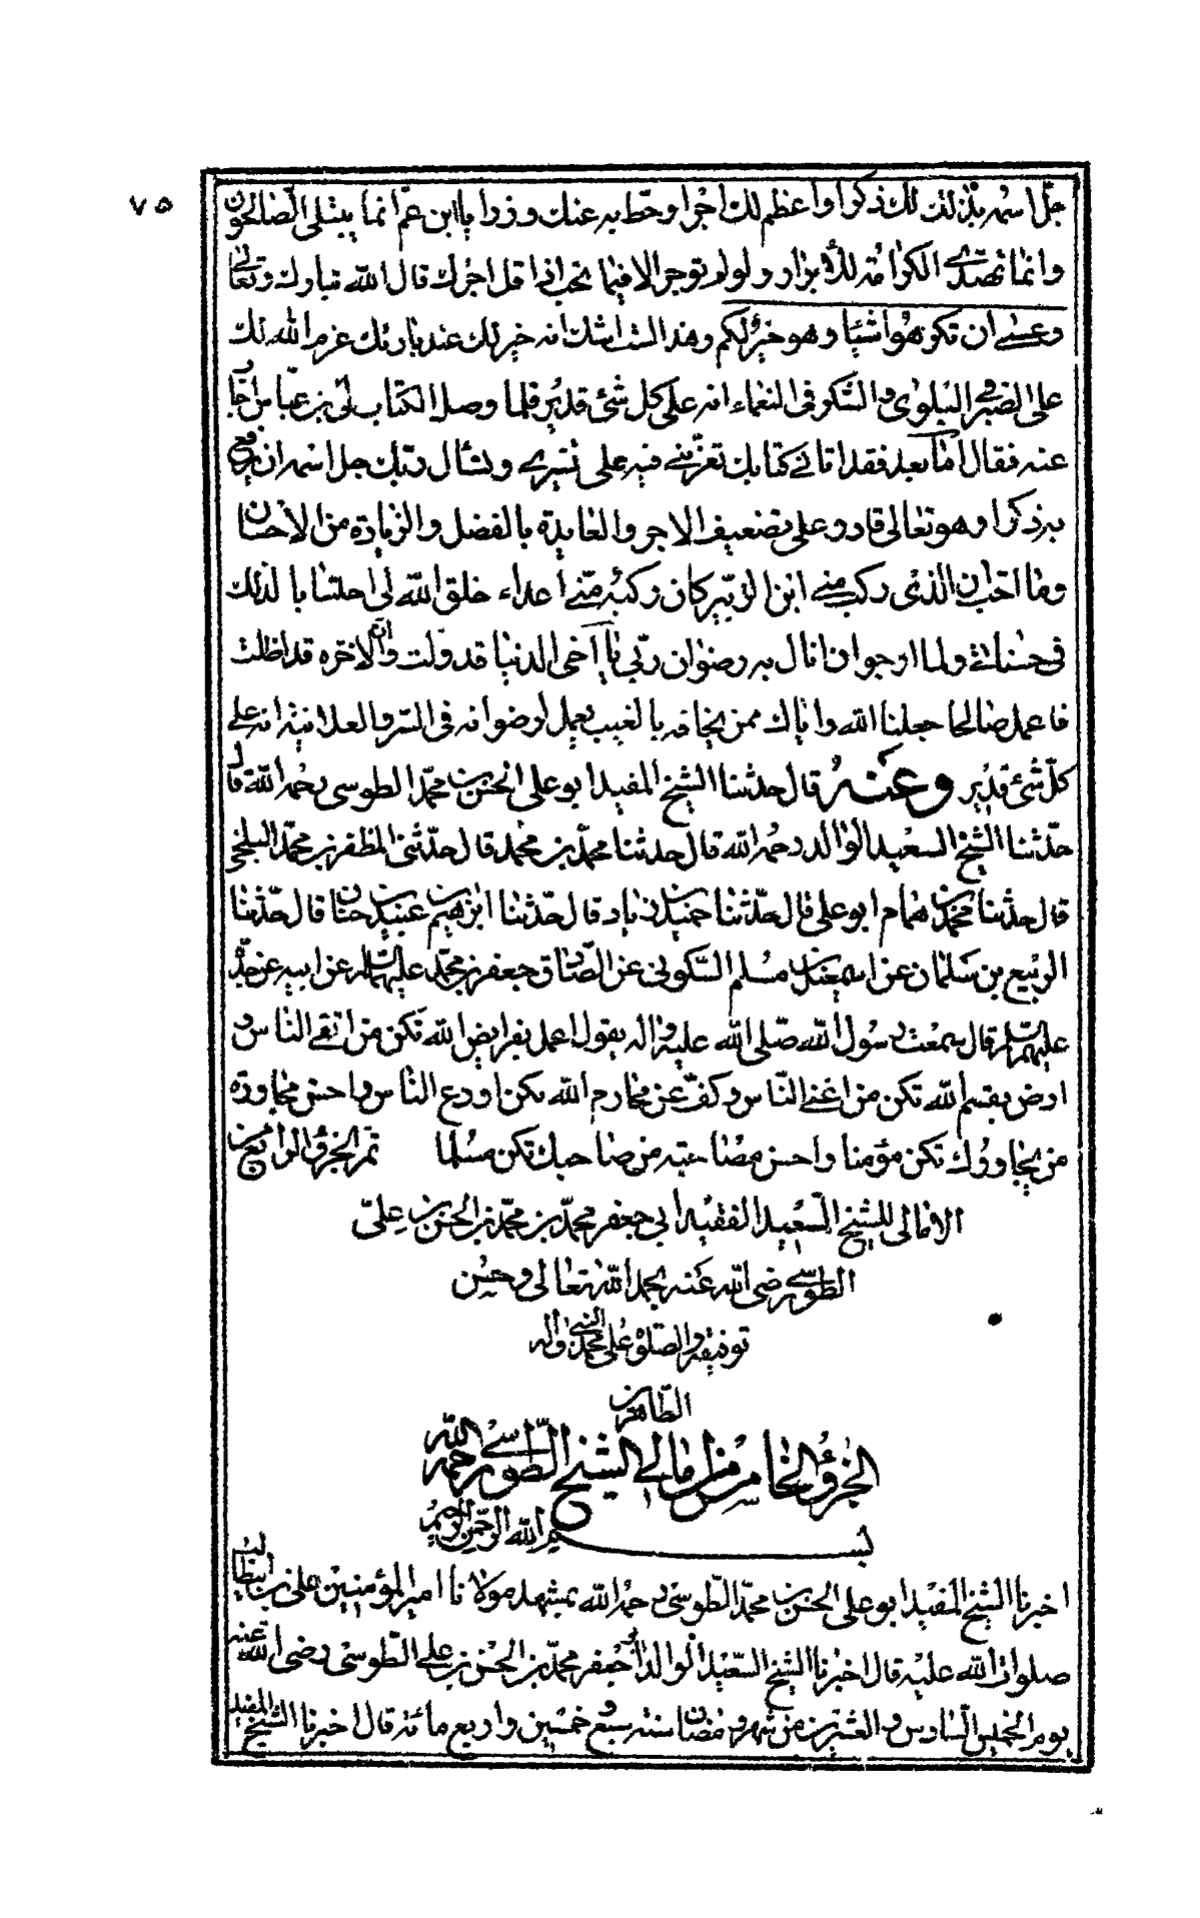 ٧٥
جل اسمه بذلك لك ذكرا واعظم لك اجرا وحط به عنك وزرا يا ابن عم انما يبتلى الصالحون
وانما تهدى الكرامة للأبرار ولو لم توجر الا فيما تحب اذا قل اجرك قال الله تبارك وتعالى
وعسى ان تكرهوا شيئا وهو خير لكم وهذا لست اشك انه خير لك عند بارئك عزم الله لك
على الصبر فى البلوى والشكر فى النعماء انه على كل شئ قدير فلما وصل الكتاب لى بن عباس اجاب
عنه فقال اما بعد فقد اتانى كتابك تعزينى فيه على تسييرى وتسأل ربك جل اسمه ان يرفع
به ذكرا وهو تعالى قادر على تضعيف الاجر والعايدة بالفضل والزيادة من الاحسان
وما احب ان الذى ركب منى ابن الزبير كان ركبه منى اعداء خلق الله لى احتسابا لذلك
فى حسناتى ولما ارجوا ان انال به رضوان ربى يا أخى الدنيا قد ولت وان الاخره قد اظلت
فاعمل صالحا جعلنا الله واياك ممن يخافه بالغيب يعمل لرضوانه فى السر والعلانية انه على
كل شئ قدير وعنه قال حدثنا الشيخ المفيد ابو على الحسن بن محمد الطوسى رحمه الله قال
حدثنا الشيخ السعيد الوالد رحمه الله قال حدثنا محمد بن محمد قال حدثنى المظفر بن محمد البلخى
قال حدثنا محمد بن همام ابو على قال حدثنا حميد بن زياد قال حدثنا ابرهيم بن عبيد بن حنان قال حدثنا
الربيع بن سلمان عن اسمعيل بن مسلم السكونى عن الصادق جعفر بن محمد عليهما السلام عن ابيه عن جده
عليهم السلام قال سمعت رسول الله صلى الله عليه واله يقول اعمل بفرايض الله تكن من اتقى الناس و
ارض بقسم الله تكن من اغنى الناس وكف عن محارم الله تكن اورع الناس واحسن مجاورة
من يجاورك تكن مؤمنا واحسن مصاحبته من صاحبك تكن مسلما تم الجزؤ الرابع من
الامالى للشيخ السعيد الفقيه ابى جعفر محمد بن محمد بن الحسن بن على
الطوسى رضى الله عنه بحمد الله تعالى وحسن
توفيقه والصلوة على محمد النبى واله
الطاهرين
الجزؤ الخامس من امالى الشيخ الطوسى رحمه الله
بسم الله الرحمن الرحيم
اخبرنا الشيخ المفيد ابو على الحسن بن محمد الطوسى رحمه الله بمشهد مولانا امير المؤمنين على بن ابيطالب
صلوات الله عليه قال اخبرنا الشيخ السعيد الوالد ابو جعفر محمد بن الحسن بن على الطوسى رضى الله عنه
يوم الخميس السادس والعشرين من شهر رمضان سنة سبع وخمسين واربع مائة قال اخبرنا الشيخ المفيد